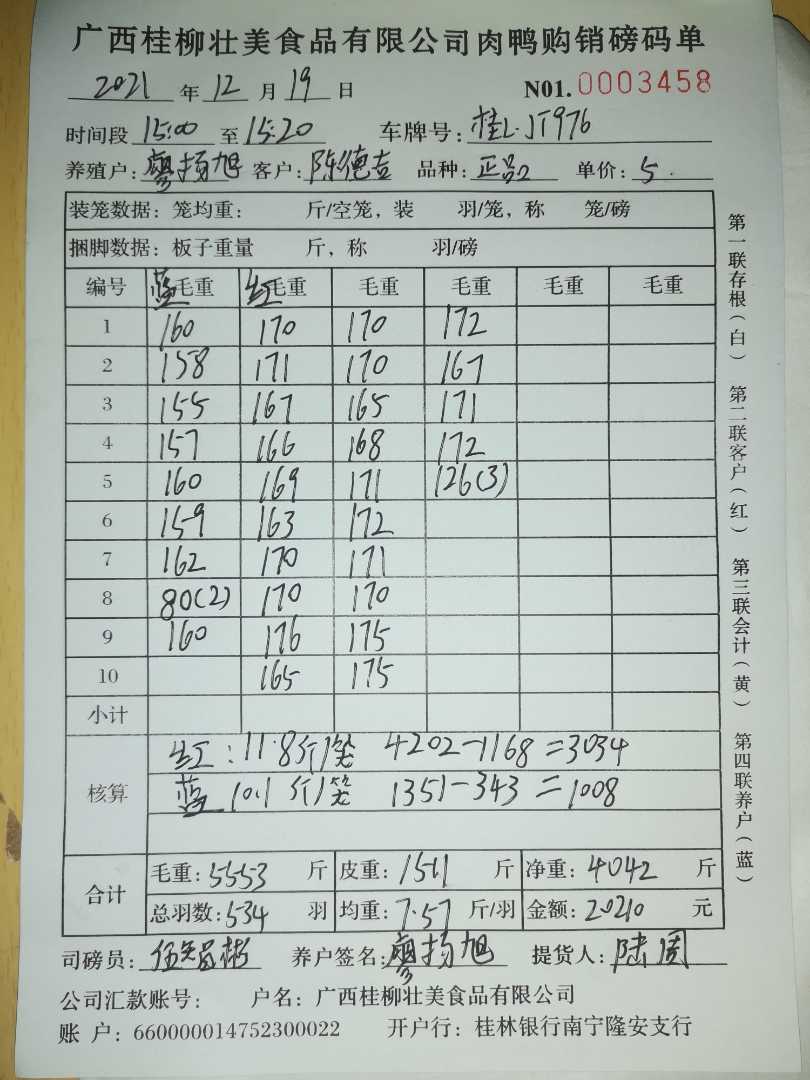 广西桂柳壮美食品有限公司肉鸭购销磅码单
2021 年 12 月 19 日 N01. 0003458
时间段 15:00 至 15:20 车牌号: 桂L·JT976
养殖户: 廖扬旭 客户: 陈德吉 品种: 正品2 单价: 5.
装笼数据: 笼均重: 斤/空笼, 装 羽/笼, 称 笼/磅
捆脚数据: 板子重量 斤, 称 羽/磅
编号 蓝毛重 红毛重 毛重 毛重 毛重 毛重
1 160 170 170 172
2 158 171 170 167
3 155 167 165 171
4 157 166 168 172
5 160 169 171 126(3)
6 159 163 172
7 162 170 171
8 80(2) 170 170
9 160 176 175
10 165 175
小计
核算
红: 11.8斤/笼 4202-1168=3034
蓝 10.1斤/笼 1351-343=1008
合计
毛重: 5553 斤 皮重: 1511 斤 净重: 4042 斤
总羽数: 534 羽 均重: 7.57 斤/羽 金额: 20210 元
司磅员: 养户签名: 廖扬旭 提货人: 陆周
公司汇款账号: 户名: 广西桂柳壮美食品有限公司
账 户: 660000014752300022 开户行: 桂林银行南宁隆安支行
第一联存根(白) 第二联客户(红) 第三联会计(黄) 第四联养户(蓝)